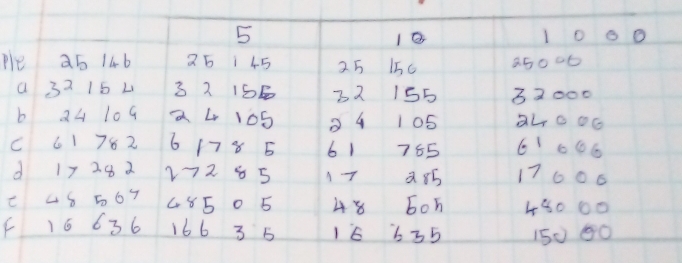 5 10 1000
25 146 25 145 25 150 25000
a 32 154 32 155 32 155 32000
b 24 104 24 105 24 105 24000
c 61 782 61785 61 785 61000
d 17 282 17285 17 285 17000
e 48 507 48505 48 505 48000
f 16 636 16635 16 635 15000